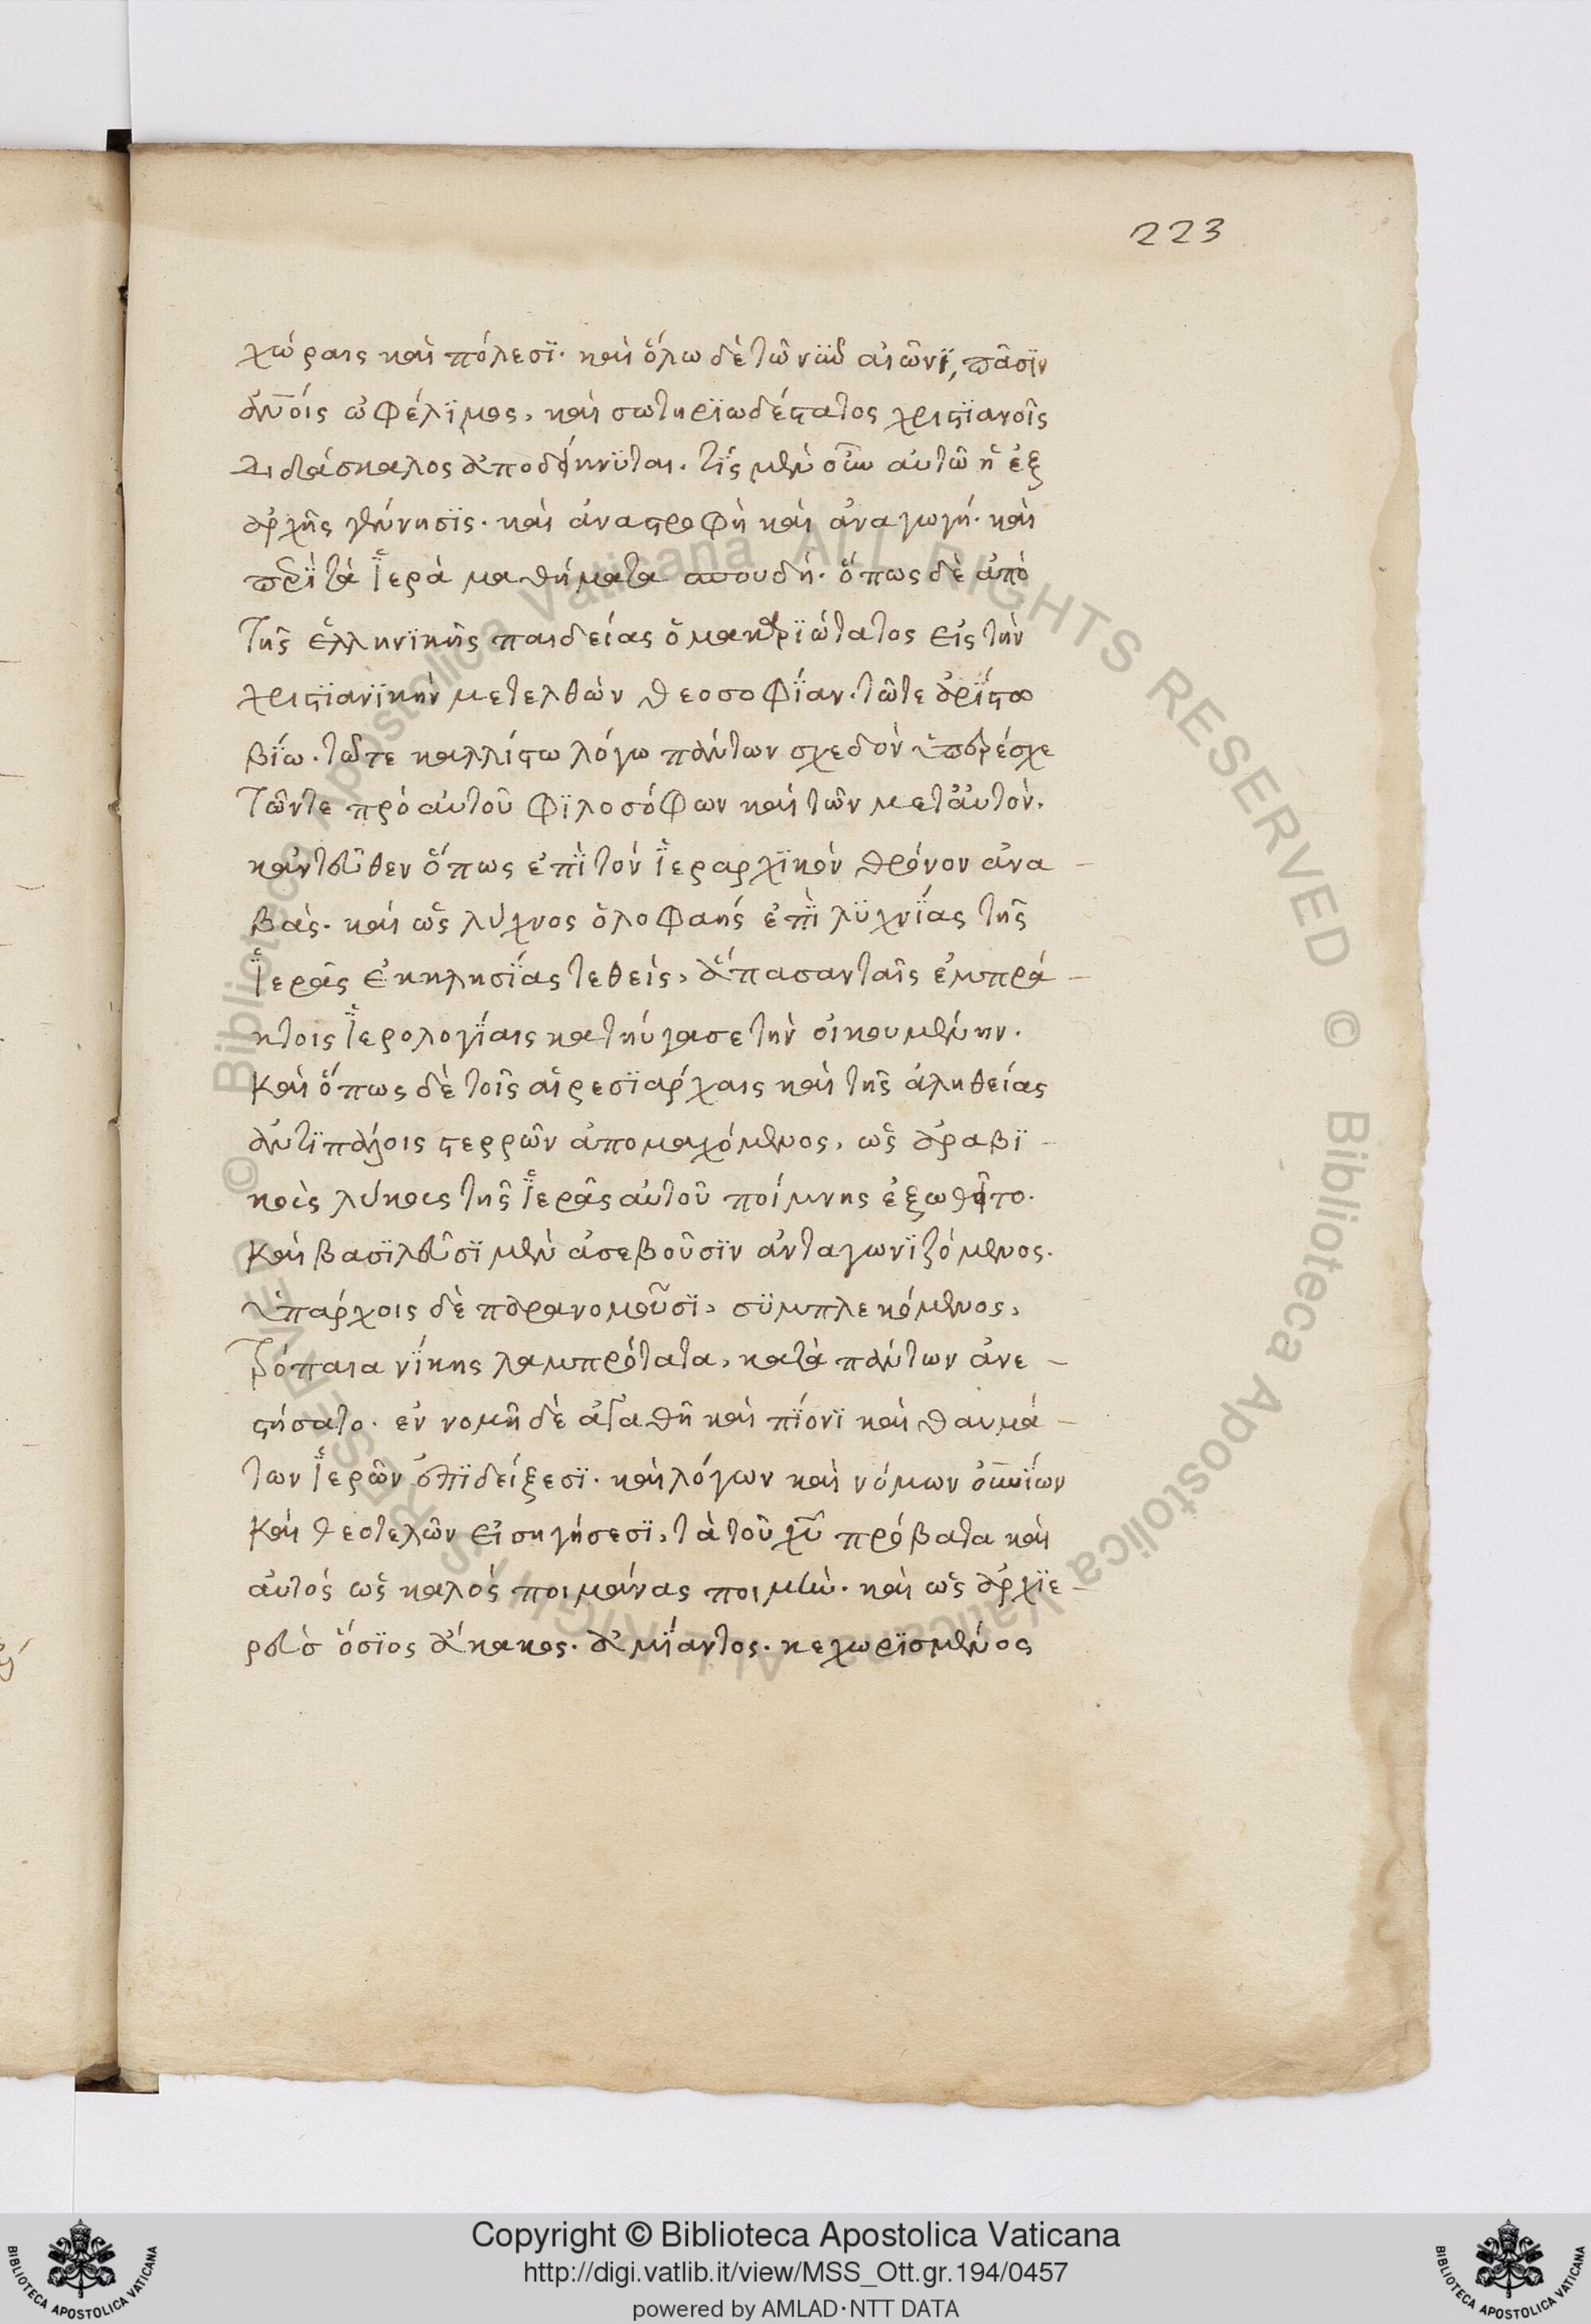 223
χώραις καὶ πόλεσϊ· καὶ ὅλω δὲ τῶ νῦν αἰῶνϊ, πᾶσϊν
ἀν̅οις ὠφέλϊμος, καὶ σωτηρϊωδέστατος χριστϊανοῖς
διδάσκαλος ἀποδείκνϋται. τίς μὲν οὖν αὐτῶ ἡ ἐξ
ἀρχῆς γέννησϊς· καὶ ἀναστροφὴ καὶ ἀναγωγή· καὶ
περὶ τὰ ἱερὰ μαθήματα σπουδή· ὅπως δὲ ἀπὸ
τῆς ἑλληνϊκῆς παιδείας ὁ μακαρϊώτατος εἰς τὴν
χριστϊανϊκὴν μετελθὼν θεοσοφΐαν. τῶ τε ἀρίστω
βίω. τῶ τε καλλίστω λόγω πάντων σχεδὸν ὑπερέσχε
τῶν τε πρὸ αὐτοῦ φϊλοσόφων καὶ τῶν μετ' αὐτόν.
κἀντεῦθεν ὅπως ἐπὶ τὸν ἱεραρχϊκὸν θρόνον ἀνα-
βὰς· καὶ ὡς λύχνος ὁλοφαὴς ἐπὶ λϋχνΐας τῆς
ἱερᾶς ἐκκλησΐας τεθεὶς, ἅπασαν ταῖς ἐμπρά-
κτοις ἱερολογΐαις κατηύγασε τὴν οἰκουμένην.
Καὶ ὅπως δὲ τοῖς αἱρεσϊάρχαις καὶ τῆς ἀληθείας
ἀντϊπάλοις στερρῶν ἀπομαχόμενος, ὡς ἀραβϊ-
κοὺς λύκους τῆς ἱερᾶς αὐτοῦ ποίμνης ἐξωθεῖτο.
Καὶ βασϊλεῦσϊ μὲν ἀσεβοῦσϊν ἀνταγωνϊζόμενος.
ὑπάρχοις δὲ παρανομοῦσϊ, σϋμπλεκόμενος,
τρόπαια νΐκης λαμπρότατα, κατὰ πάντων ἀνε-
στήσατο. ἐν νομῆ δὲ ἀγαθῆ καὶ πΐονϊ καὶ θαυμά-
των ἱερῶν ἐπϊδείξεσϊ. καὶ λόγων καὶ νόμων οὐν̅ΐων
Καὶ θεοτελῶν εἰσηγήσεσϊ, τὰ τοῦ χ̅υ̅ πρόβατα καὶ
αὐτὸς ὡς καλὸς ποιμάνας ποιμὴν. καὶ ὡς ἀρχϊε-
ρεὺσ ὅσϊος ἄκακος. ἀμΐαντος. κεχωρϊσμένος
Copyright © Biblioteca Apostolica Vaticana
http://digi.vatlib.it/view/MSS_Ott.gr.194/0457
powered by AMLAD·NTT DATA